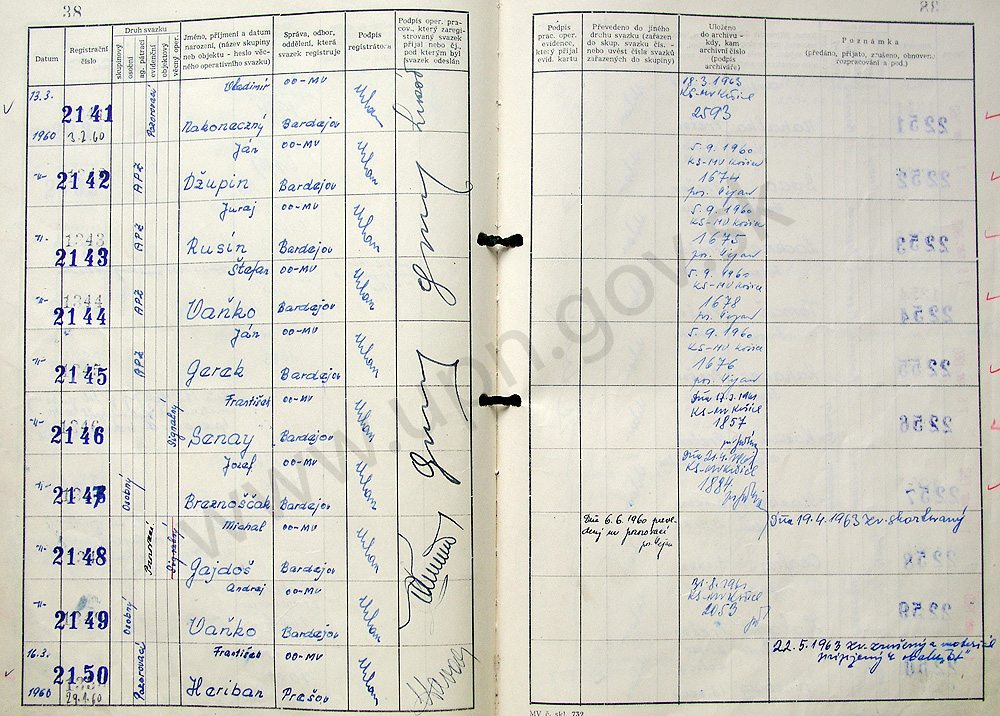 38
Datum
Registrační číslo
Druh svazku
skupinový
osobní
ag. pátrací
evidenční
objektový
věcný oper.
Jméno, příjmení a datum narození, (název skupiny neb objektu - heslo věcného operativního svazku)
Správa, odbor, oddělení, která svazek registruje
Podpis registrátora
Podpis oper. pracov., který zaregistrovaný svazek přijal nebo čj., pod kterým byl svazek odeslán
13.3. 1960
2141
3.2.60
Pozorovací
Vladimír
Nakonaczný
oo-MV
Bardejov
2142
APZ
Ján
Džupin
oo-MV
Bardejov
2143
APZ
Juraj
Rusín
oo-MV
Bardejov
2144
APZ
Štefan
Vaňko
oo-MV
Bardejov
2145
APZ
Ján
Gerek
oo-MV
Bardejov
2146
Signálny
František
Senay
oo-MV
Bardejov
2147
Osobný
Jozef
Breznoščák
oo-MV
Bardejov
2148
Signálny
Michal
Gajdoš
oo-MV
Bardejov
2149
Osobný
Andrej
Vaňko
oo-MV
Bardejov
16.3. 1960
2150
29.1.60
Pozorovací
František
Heriban
oo-MV
Prešov
Podpis prac. oper. evidence, který přijal evid. kartu
Převedeno do jiného druhu svazku (zařazen do skup. svazku čís. - nebo uvést čísla svazků zařazených do skupiny)
Uloženo do archivu - kdy, kam archivní číslo (podpis archiváře)
Poznámka
(předáno, přijato, zrušeno, obnoven. rozpracování a pod.)
18.3.1963
KS-MV Košice
2593
5.9.1960
KS-MV Košice
1674
5.9.1960
KS-MV Košice
1675
5.9.1960
KS-MV Košice
1678
5.9.1960
KS-MV Košice
1676
Dňa 17.3.1961
KS-MV Košice
1857
KS-MV Košice
1884
Dňa 6.6.1960 prevedený na pozorovací
Dňa 19.4.1963 zv. skartovaný
31.8.1961
KS-MV Košice
2053
22.5.1963 zv. zrušený a materiál pripojený k
MV č. skl. 732
www.upn.gov.sk